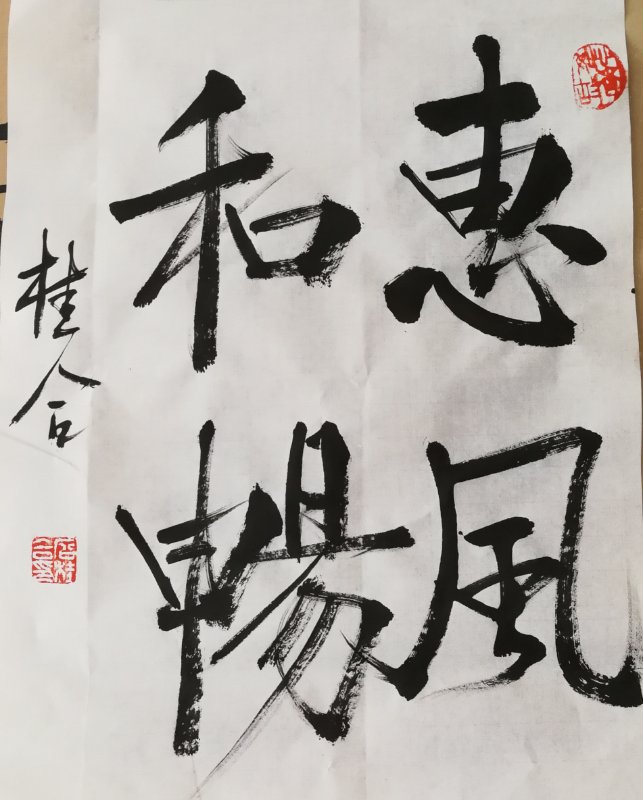 惠風
和暢
桂合